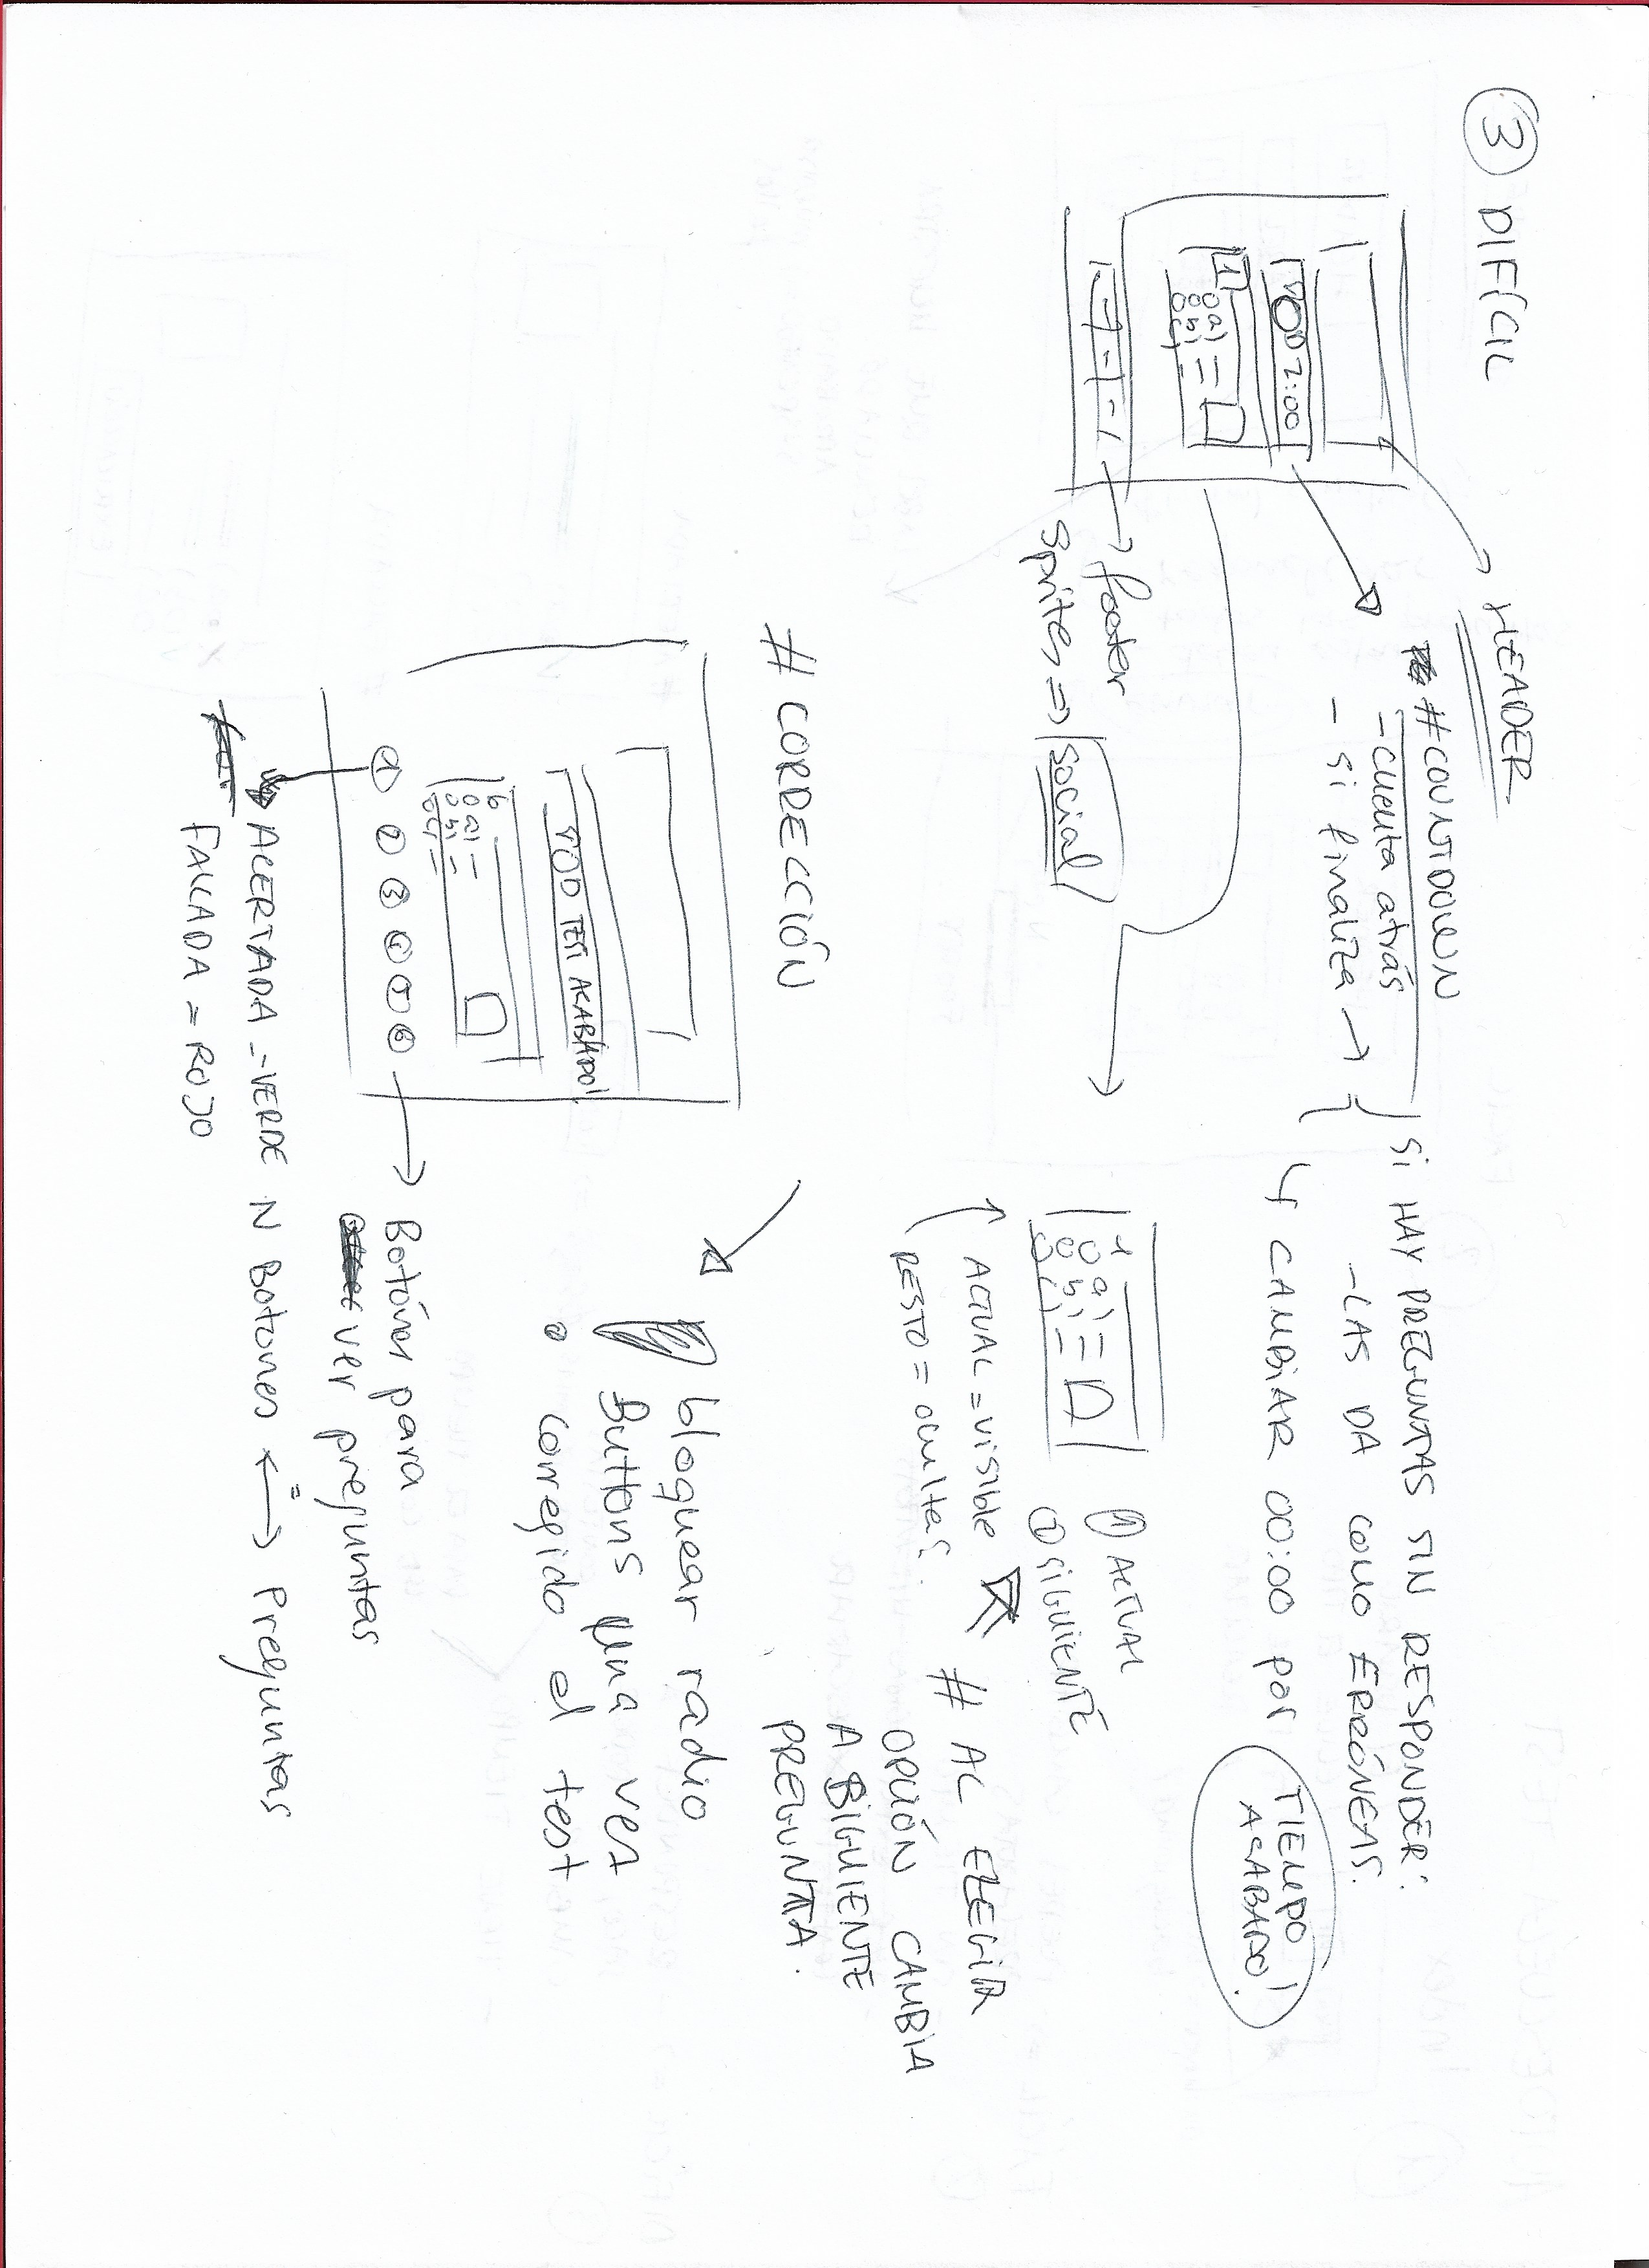 3 DIFÍCIL
HEADER
# COUNTDOWN
- cuenta atrás
- si finaliza
Si HAY PREGUNTAS SIN RESPONDER:
- LAS DA COMO ERRÓNEAS.
CAMBIAR 00:00 por TIEMPO
ACABADO!
2:00
1
a)
b)
c)
footer
sprites => social
1
a)
b)
c)
1 ACTUAL
2 SIGUIENTE
ACTUAL = visible
RESTO = ocultas.
# AL ELEGIR
OPCIÓN CAMBIA
A SIGUIENTE
PREGUNTA.
# CORRECCIÓN
bloquear radio
Buttons una vez
corregido el test
TEST ACABADO!
6
a)
b)
c)
1 2 3 4 5 6
Botónes para
ver preguntas
ACERTADA - VERDE N Botones = Preguntas
FALLADA = ROJO